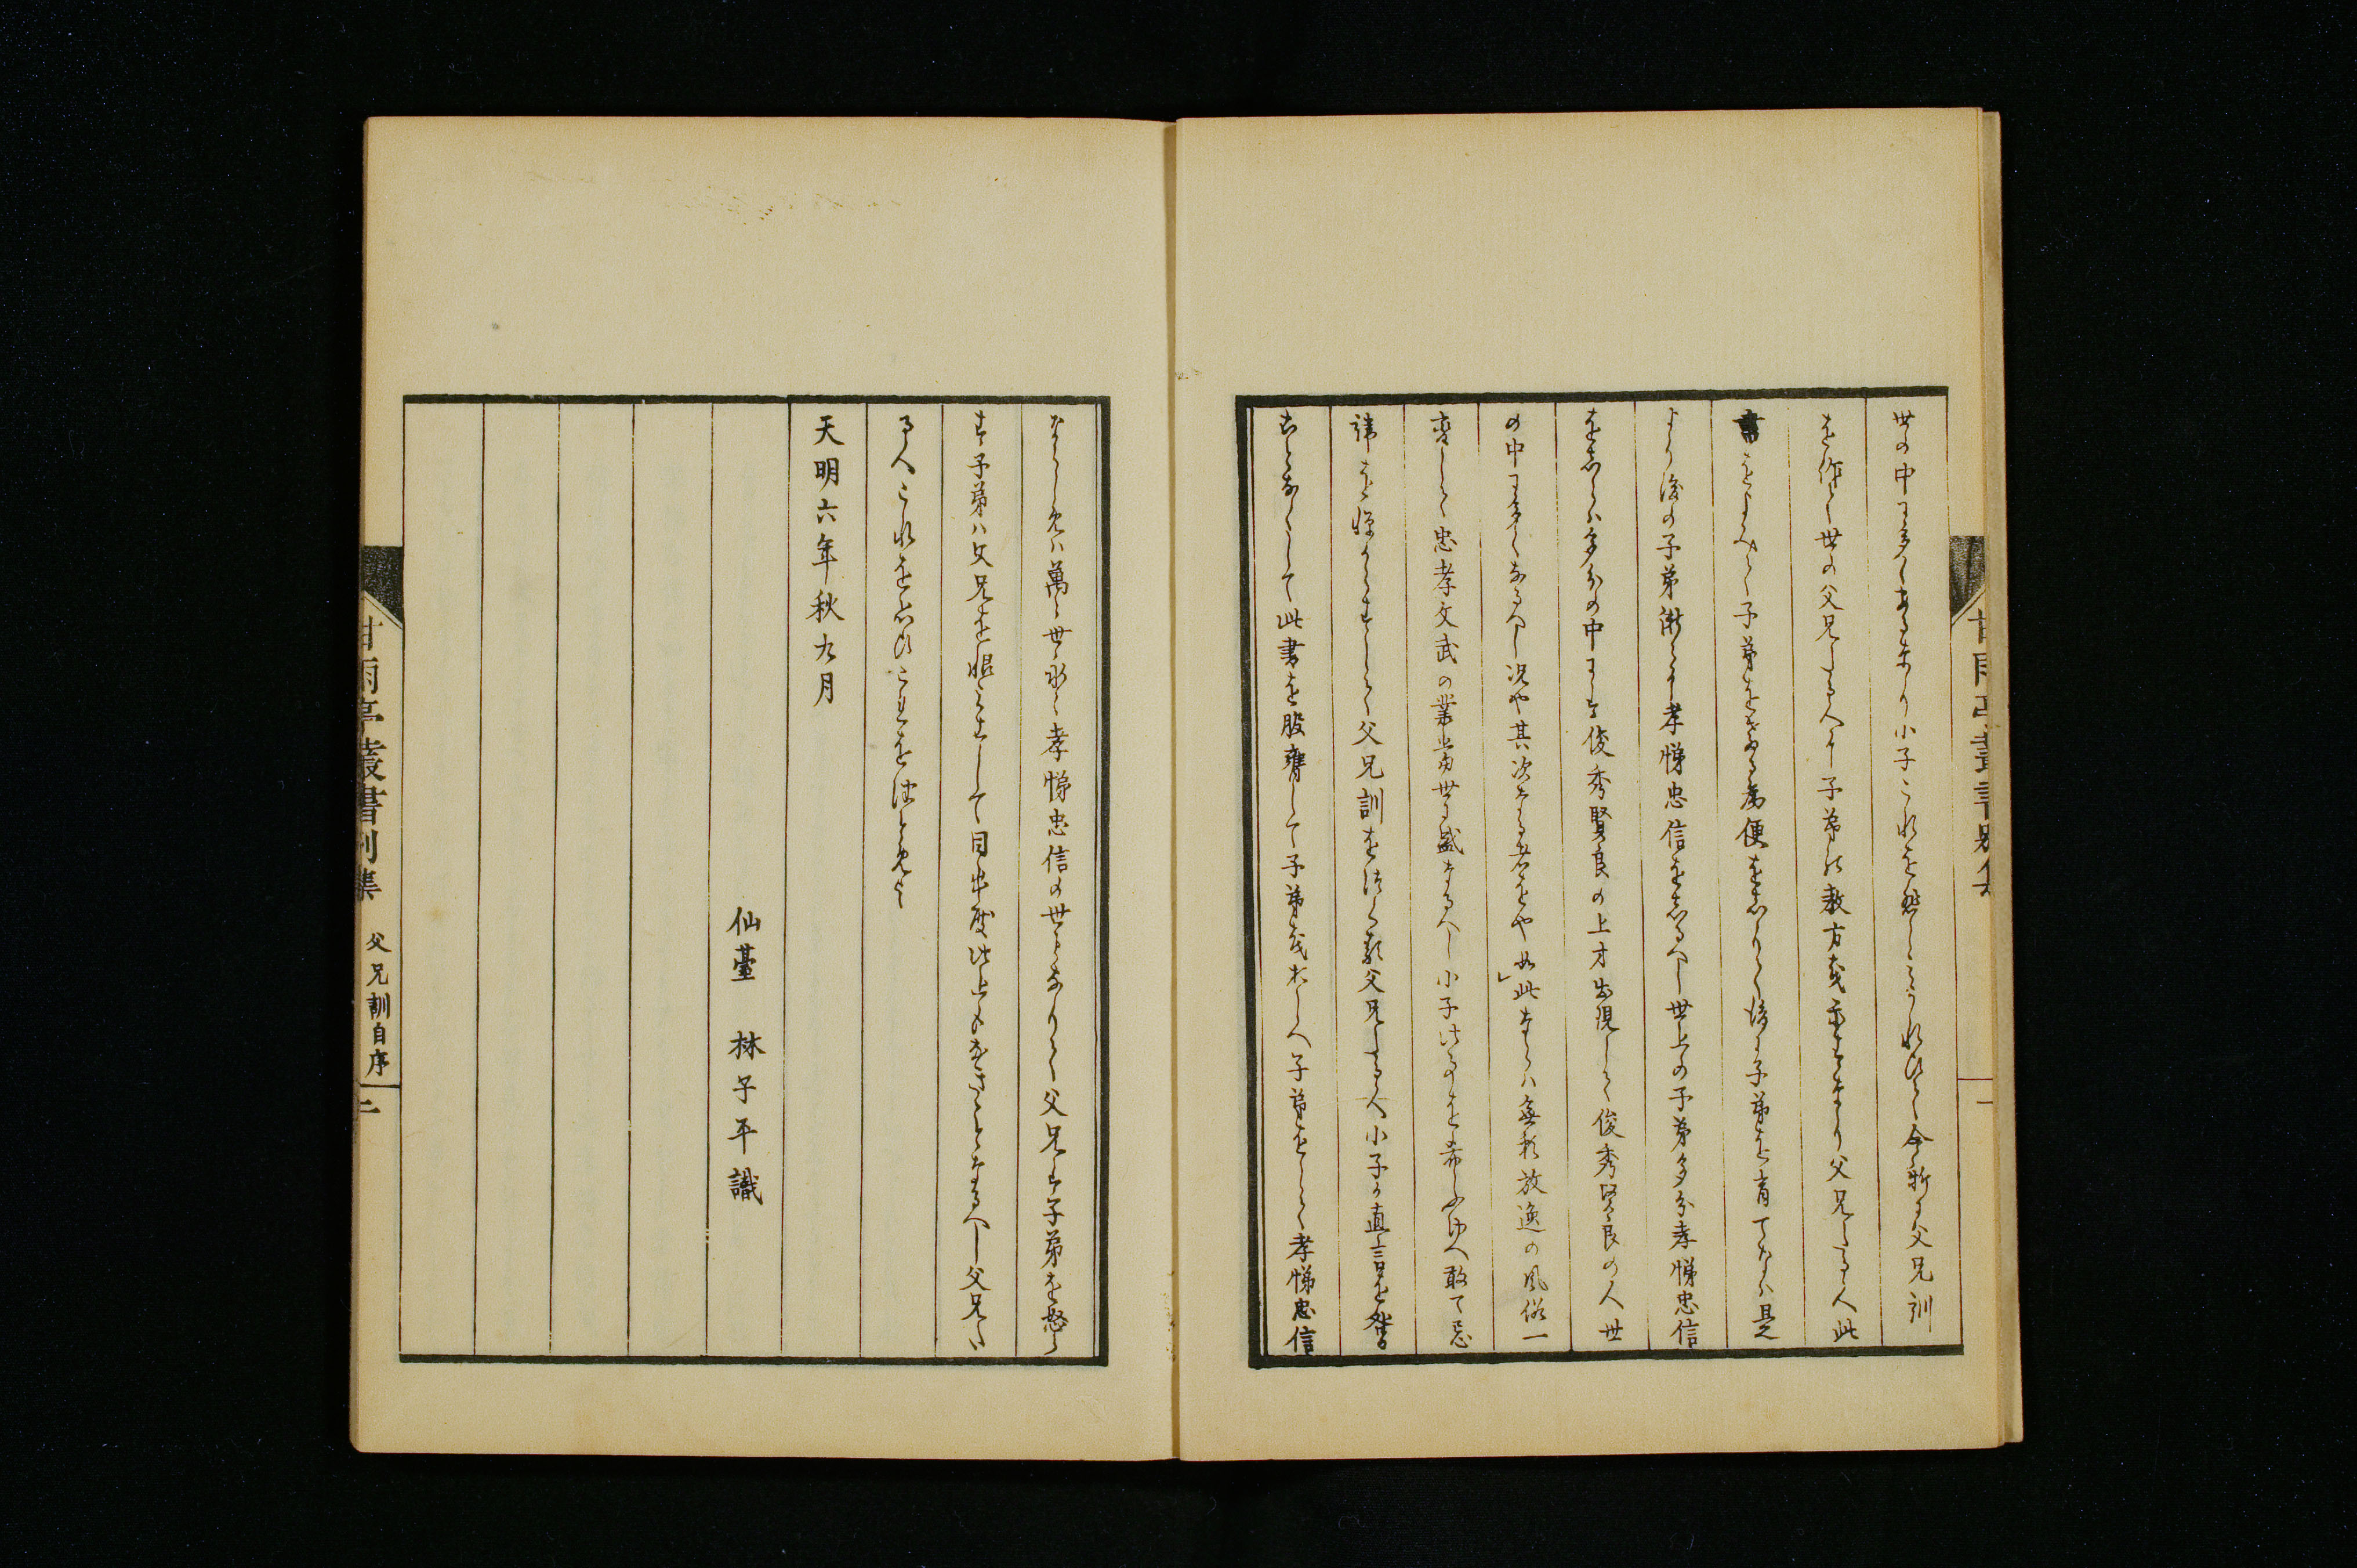 世の中に多くあるなり小子これを愁しみうれひて今新に父兄訓
を作て世の父兄たる人に子弟の教方を示すなり父兄たる人此
書をよみて子弟をそたつる為便を志りて後に子弟を育てなは是
より後の子弟漸々に孝悌忠信を志るへし世上の子弟多分孝悌忠信
を志らハ多分の中にハ俊秀賢良の上才出現して俊秀賢良の人世
の中に多くなるへし况や其次なる者をや如此ならハ無頼放逸の風俗一
変して忠孝文武の業当世に盛なるへし小子此事を希ふゆへ敢て忌
諱を憚からすして父兄訓を述く願父兄たる人小子か直言を咎る
ことなくして此書を服膺して子弟をおしへ子弟をして孝悌忠信
ならしめハ萬々世永く孝悌忠信の世となりて父兄は子弟を怒ら
す子弟ハ父兄を恨こして目出度此上もなきことなるへし父兄た
る人これを思ひこれをつとめよ
天明六年秋九月
仙臺 林子平識
甘雨亭叢書別集 父兄訓自序 二